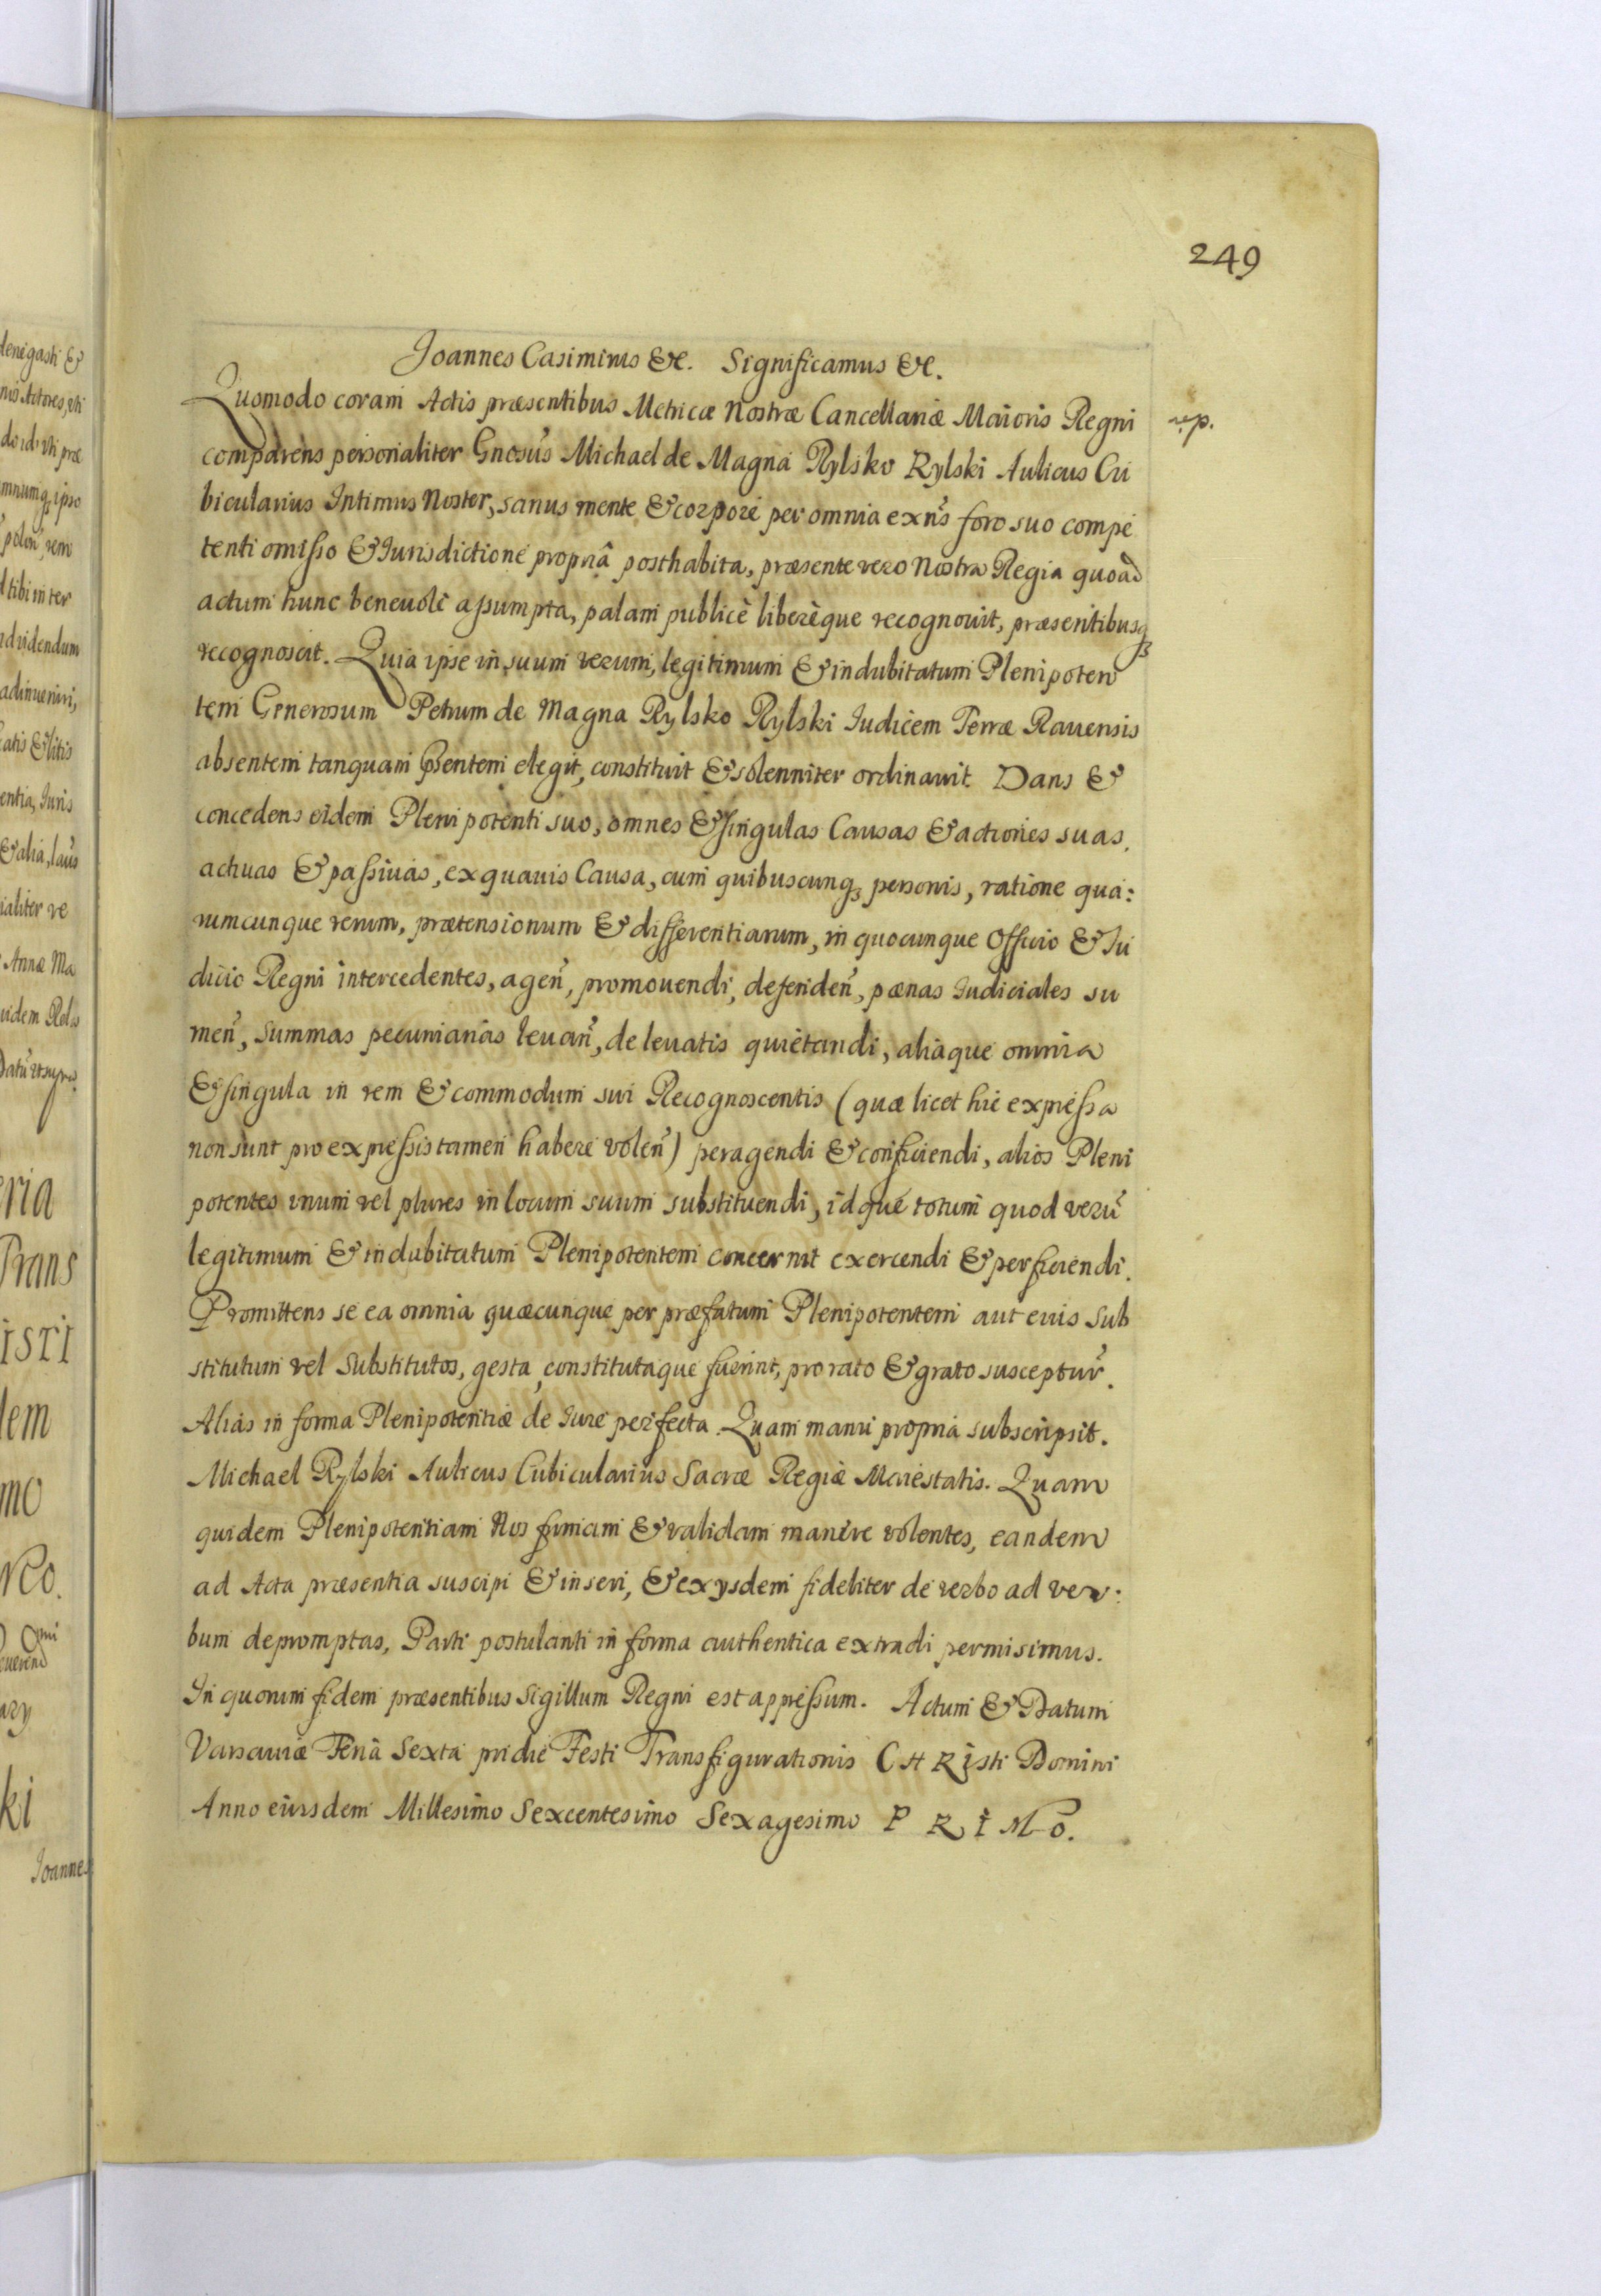 249
Joannes Casimirus &c. Significamus &c.
Quomodo coram Actis præsentibus Metricæ Nostræ Cancellariæ Maioris Regni
comparens personaliter Gnosus Michael de Magna Rylsko Rylski Aulicus Cu
bicularius Intimus Noster, sanus mente & corpore per omnia exns foro suo compe
tenti omisso & Iurisdictione propriâ posthabita, præsente vero Nostra Regia quoad
actum hunc beneuolè assumpta, palam publicè liberèque recognouit, præsentibusq3
recognoscit. Quia ipse in suum verum, legitimum & indubitatum Plenipoten
tem Generosum Petrum de Magna Rylsko Rylski Iudicem Terræ Rauensis
absentem tanquam psentem elegit, constituit & solenniter ordinauit. Dans &
concedens eidem Plenipotenti suo, omnes & singulas Causas & actiones suas,
actiuas & passiuas, ex quauis Causa, cum quibuscunq3 personis, ratione qua:
rumcunque rerum, prætensionum & differentiarum, in quocunque Officio & Iu
dicio Regni intercedentes, agen, promouendi, defenden, pœnas Iudiciales su
men, summas pecuniarias leuan, de leuatis quietandi, aliàque omnia
& singula in rem & commodum sui Recognoscentis (quæ licet hic expressa
non sunt pro expressis tamen habere volen) peragendi & conficiendi, alios Pleni
potentes unum vel plures in locum suum substituendi, idque totum quod veru
legitimum & indubitatum Plenipotentem concernit exercendi & perficiendi.
Promittens se ea omnia quæcunque per præfatum Plenipotentem aut eius sub
stitutum vel substitutos, gesta, constitutaque fuerint, pro rato & grato susceptur.
Alias in forma Plenipotentiæ de Iure perfecta. Quam manu propria subscripsit.
Michael Rylski Aulicus Cubicularius Sacræ Regiæ Maiestatis. Quam
quidem Plenipotentiam Nos firmam & validam manere volentes, eandem
ad Acta præsentia suscipi & inseri, & ex ysdem fideliter de verbo ad ver:
bum depromptas, Parti postulanti in forma authentica extradi permisimus.
In quorum fidem præsentibus Sigillum Regni est appressum. Actum & Datum
Varsauiæ Feriâ Sexta pridie Festi Transfigurationis CHRisti Domini
Anno eiusdem Millesimo Sexcentesimo Sexagesimo PRIMO.